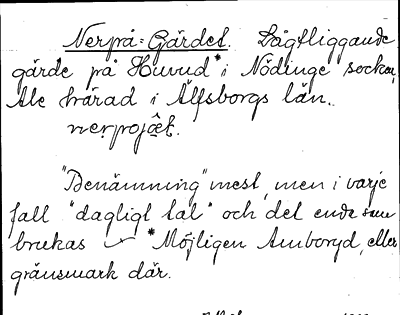 Nerpå-Gärdet. Lågtliggande
gärde på Huvud* i Nödinge socken,
Ale härad i Älfsborgs län.
nerpojæ̂t.
"Benämning" mest, men i varje
fall "dagligt tal" och det enda som
brukas *Möjligen Amboryd, eller
gränsmark där.